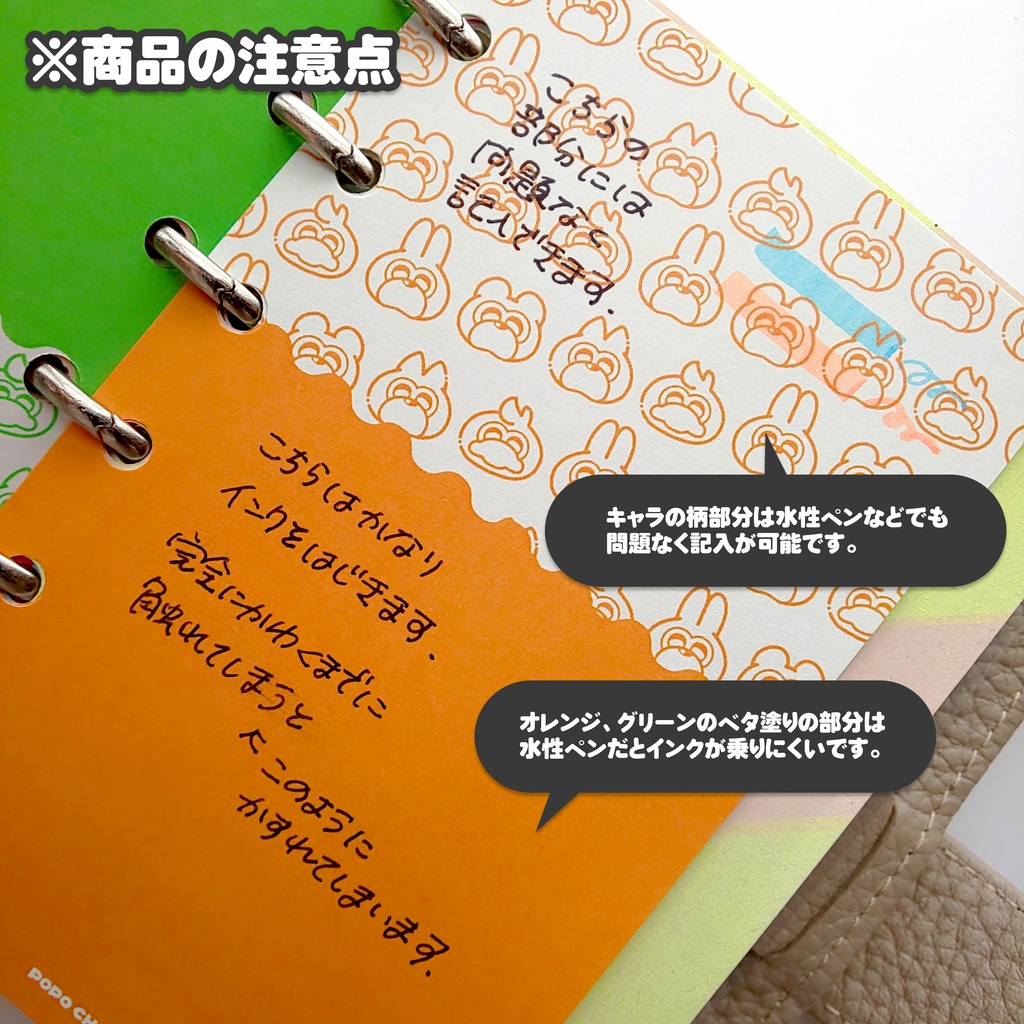 ※商品の注意点
こちらの
部分には
問題なく
記入できます.
キャラの柄部分は水性ペンなどでも
問題なく記入が可能です。
こちらはかなり
インクをはじきます.
完全にかわくまでに
触れてしまうと
このように
かすれてしまいます.
オレンジ、グリーンのベタ塗りの部分は
水性ペンだとインクが乗りにくいです。
POPO CH